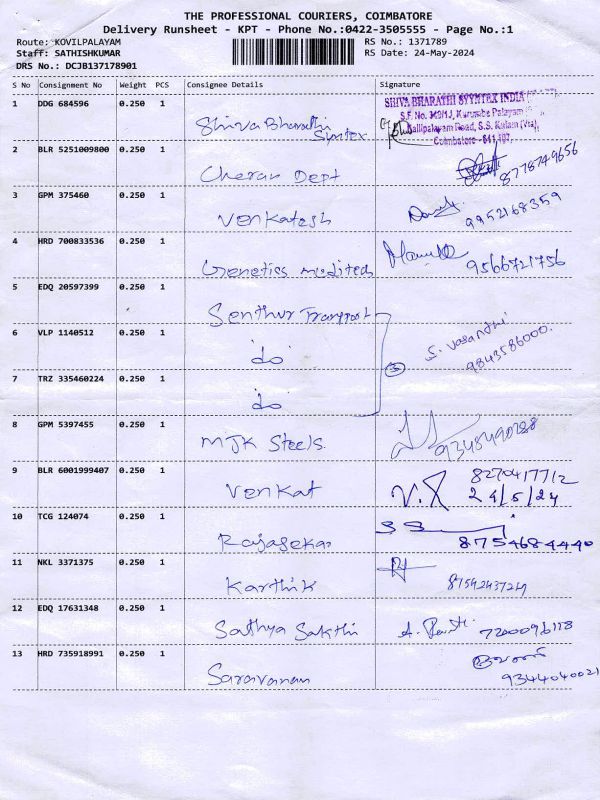 THE PROFESSIONAL COURIERS, COIMBATORE
Delivery Runsheet - KPT - Phone No.:0422-3505555 - Page No.:1
Route: KOVILPALAYAM
RS No.: 1371789
Staff: SATHISHKUMAR
RS Date: 24-May-2024
DRS No.: DCJB137178901
S No Consignment No Weight PCS Consignee Details Signature
1 DDG 684596 0.250 1 Shiva Bharathi
Syntex
SHIVA BHARATHI SYYNTEX INDIA
S.F. No. 349/1J, Kurumbe Palayam
Kallipalayam Road, S.S. Kulam (Via),
Coimbatore - 641 107.
2 BLR 5251009800 0.250 1 Cheran Dept 8778749656
3 GPM 375460 0.250 1 Venkatesh 9952168359
4 HRD 700833536 0.250 1 Genetics modited 9566721756
5 EDQ 20597399 0.250 1 Senthur Transport
6 VLP 1140512 0.250 1 do
3 S. Vasanthi
9843586000.
7 TRZ 335460224 0.250 1 do
8 GPM 5397455 0.250 1 MJK Steels. 9348490788
9 BLR 6001999407 0.250 1 Venkat V. 8270417712
24/5/24
10 TCG 124074 0.250 1 Rajasekar SS 8754684440
11 NKL 3371375 0.250 1 Karthik 8754243724
12 EDQ 17631348 0.250 1 Sathya Sakthi A. 7200096118
13 HRD 735918991 0.250 1 Saravanan 9344040021